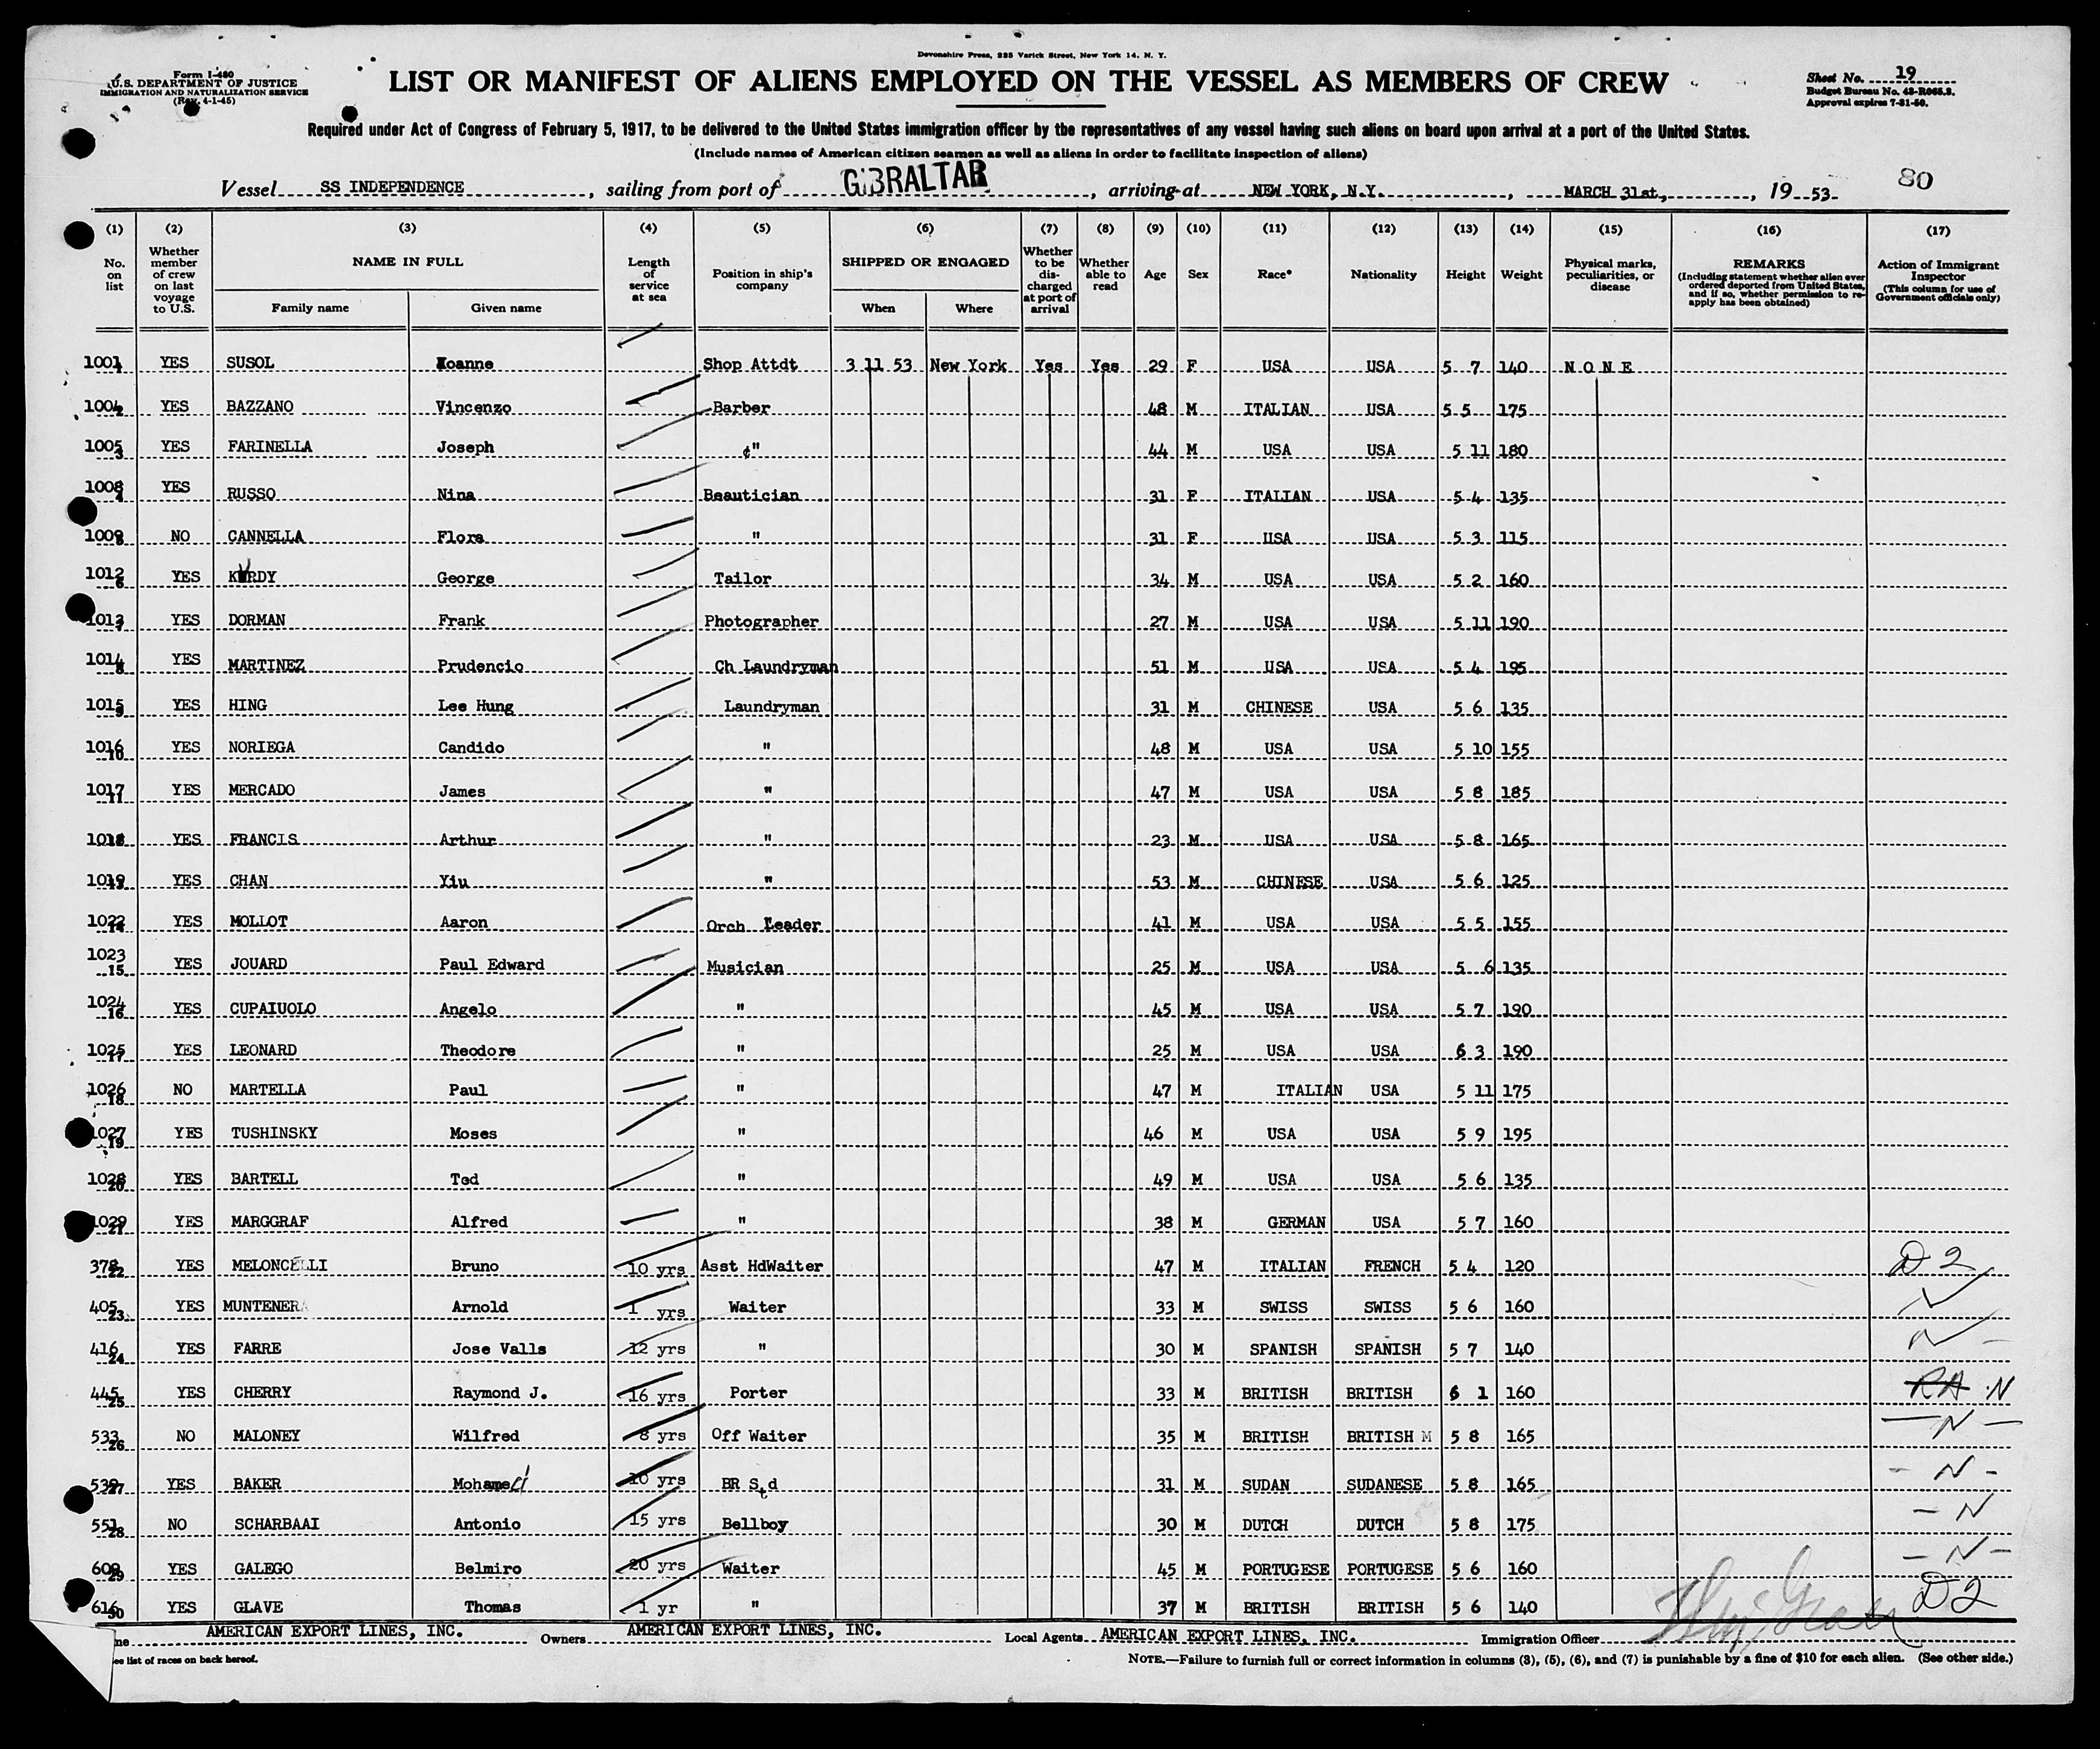 Devonshire Press, 225 Varick Street, New York 14, N. Y.
Form I-480
U.S. DEPARTMENT OF JUSTICE
IMMIGRATION AND NATURALIZATION SERVICE
(Rev. 4-1-45)
LIST OR MANIFEST OF ALIENS EMPLOYED ON THE VESSEL AS MEMBERS OF CREW
Sheet No. 19
Budget Bureau No. 43-R065.3.
Approval expires 7-31-50.
Required under Act of Congress of February 5, 1917, to be delivered to the United States immigration officer by the representatives of any vessel having such aliens on board upon arrival at a port of the United States.
(Include names of American citizen seamen as well as aliens in order to facilitate inspection of aliens)
Vessel SS INDEPENDENCE, sailing from port of GIBRALTAR, arriving at NEW YORK, N.Y., MARCH 31st, 19 53
80
(1) No. on list (2) Whether member of crew on last voyage to U.S. (3) NAME IN FULL Family name Given name (4) Length of service at sea (5) Position in ship's company (6) SHIPPED OR ENGAGED When Where (7) Whether to be discharged at port of arrival (8) Whether able to read (9) Age (10) Sex (11) Race* (12) Nationality (13) Height (14) Weight (15) Physical marks, peculiarities, or disease (16) REMARKS (Including statement whether alien ever ordered deported from United States, and if so, whether permission to re-apply has been obtained) (17) Action of Immigrant Inspector (This column for use of Government officials only)
1001 YES SUSOL Joanne Shop Attdt 3 11 53 New York Yes Yes 29 F USA USA 5 7 140 N O N E
1004 YES BAZZANO Vincenzo Barber 48 M ITALIAN USA 5 5 175
1005 YES FARINELLA Joseph " 44 M USA USA 5 11 180
1008 YES RUSSO Nina Beautician 31 F ITALIAN USA 5 4 135
1009 NO CANNELLA Flora " 31 F USA USA 5 3 115
1012 YES KURDY George Tailor 34 M USA USA 5 2 160
1013 YES DORMAN Frank Photographer 27 M USA USA 5 11 190
1014 YES MARTINEZ Prudencio Ch Laundryman 51 M USA USA 5 4 195
1015 YES HING Lee Hung Laundryman 31 M CHINESE USA 5 6 135
1016 10 YES NORIEGA Candido " 48 M USA USA 5 10 155
1017 11 YES MERCADO James " 47 M USA USA 5 8 185
1018 YES FRANCIS Arthur " 23 M USA USA 5 8 165
1019 YES CHAN Yiu " 53 M CHINESE USA 5 6 125
1022 14 YES MOLLOT Aaron Orch Leader 41 M USA USA 5 5 155
1023 15 YES JOUARD Paul Edward Musician 25 M USA USA 5 6 135
1024 16 YES CUPAIUOLO Angelo " 45 M USA USA 5 7 190
1025 17 YES LEONARD Theodore " 25 M USA USA 6 3 190
1026 18 NO MARTELLA Paul " 47 M ITALIAN USA 5 11 175
1027 19 YES TUSHINSKY Moses " 46 M USA USA 5 9 195
1028 20 YES BARTELL Ted " 49 M USA USA 5 6 135
1029 21 YES MARGGRAF Alfred " 38 M GERMAN USA 5 7 160
378 22 YES MELONCELLI Bruno 10 yrs Asst HdWaiter 47 M ITALIAN FRENCH 5 4 120 D2
405 23 YES MUNTENER Arnold 1 yrs Waiter 33 M SWISS SWISS 5 6 160
416 24 YES FARRE Jose Valls 12 yrs " 30 M SPANISH SPANISH 5 7 140 N
445 25 YES CHERRY Raymond J. 16 yrs Porter 33 M BRITISH BRITISH 6 1 160 RA N
533 26 NO MALONEY Wilfred 8 yrs Off Waiter 35 M BRITISH BRITISH M 5 8 165 - N -
539 27 YES BAKER Mohamed 10 yrs BR Std 31 M SUDAN SUDANESE 5 8 165 - N -
551 28 NO SCHARBAAI Antonio 15 yrs Bellboy 30 M DUTCH DUTCH 5 8 175 - N
609 29 YES GALEGO Belmiro 20 yrs Waiter 45 M PORTUGESE PORTUGESE 5 6 160 - N -
616 30 YES GLAVE Thomas 1 yr " 37 M BRITISH BRITISH 5 6 140 D2
AMERICAN EXPORT LINES, INC. Owners AMERICAN EXPORT LINES, INC. Local Agents AMERICAN EXPORT LINES, INC. Immigration Officer
list of races on back hereof.
NOTE.—Failure to furnish full or correct information in columns (3), (5), (6), and (7) is punishable by a fine of $10 for each alien. (See other side.)